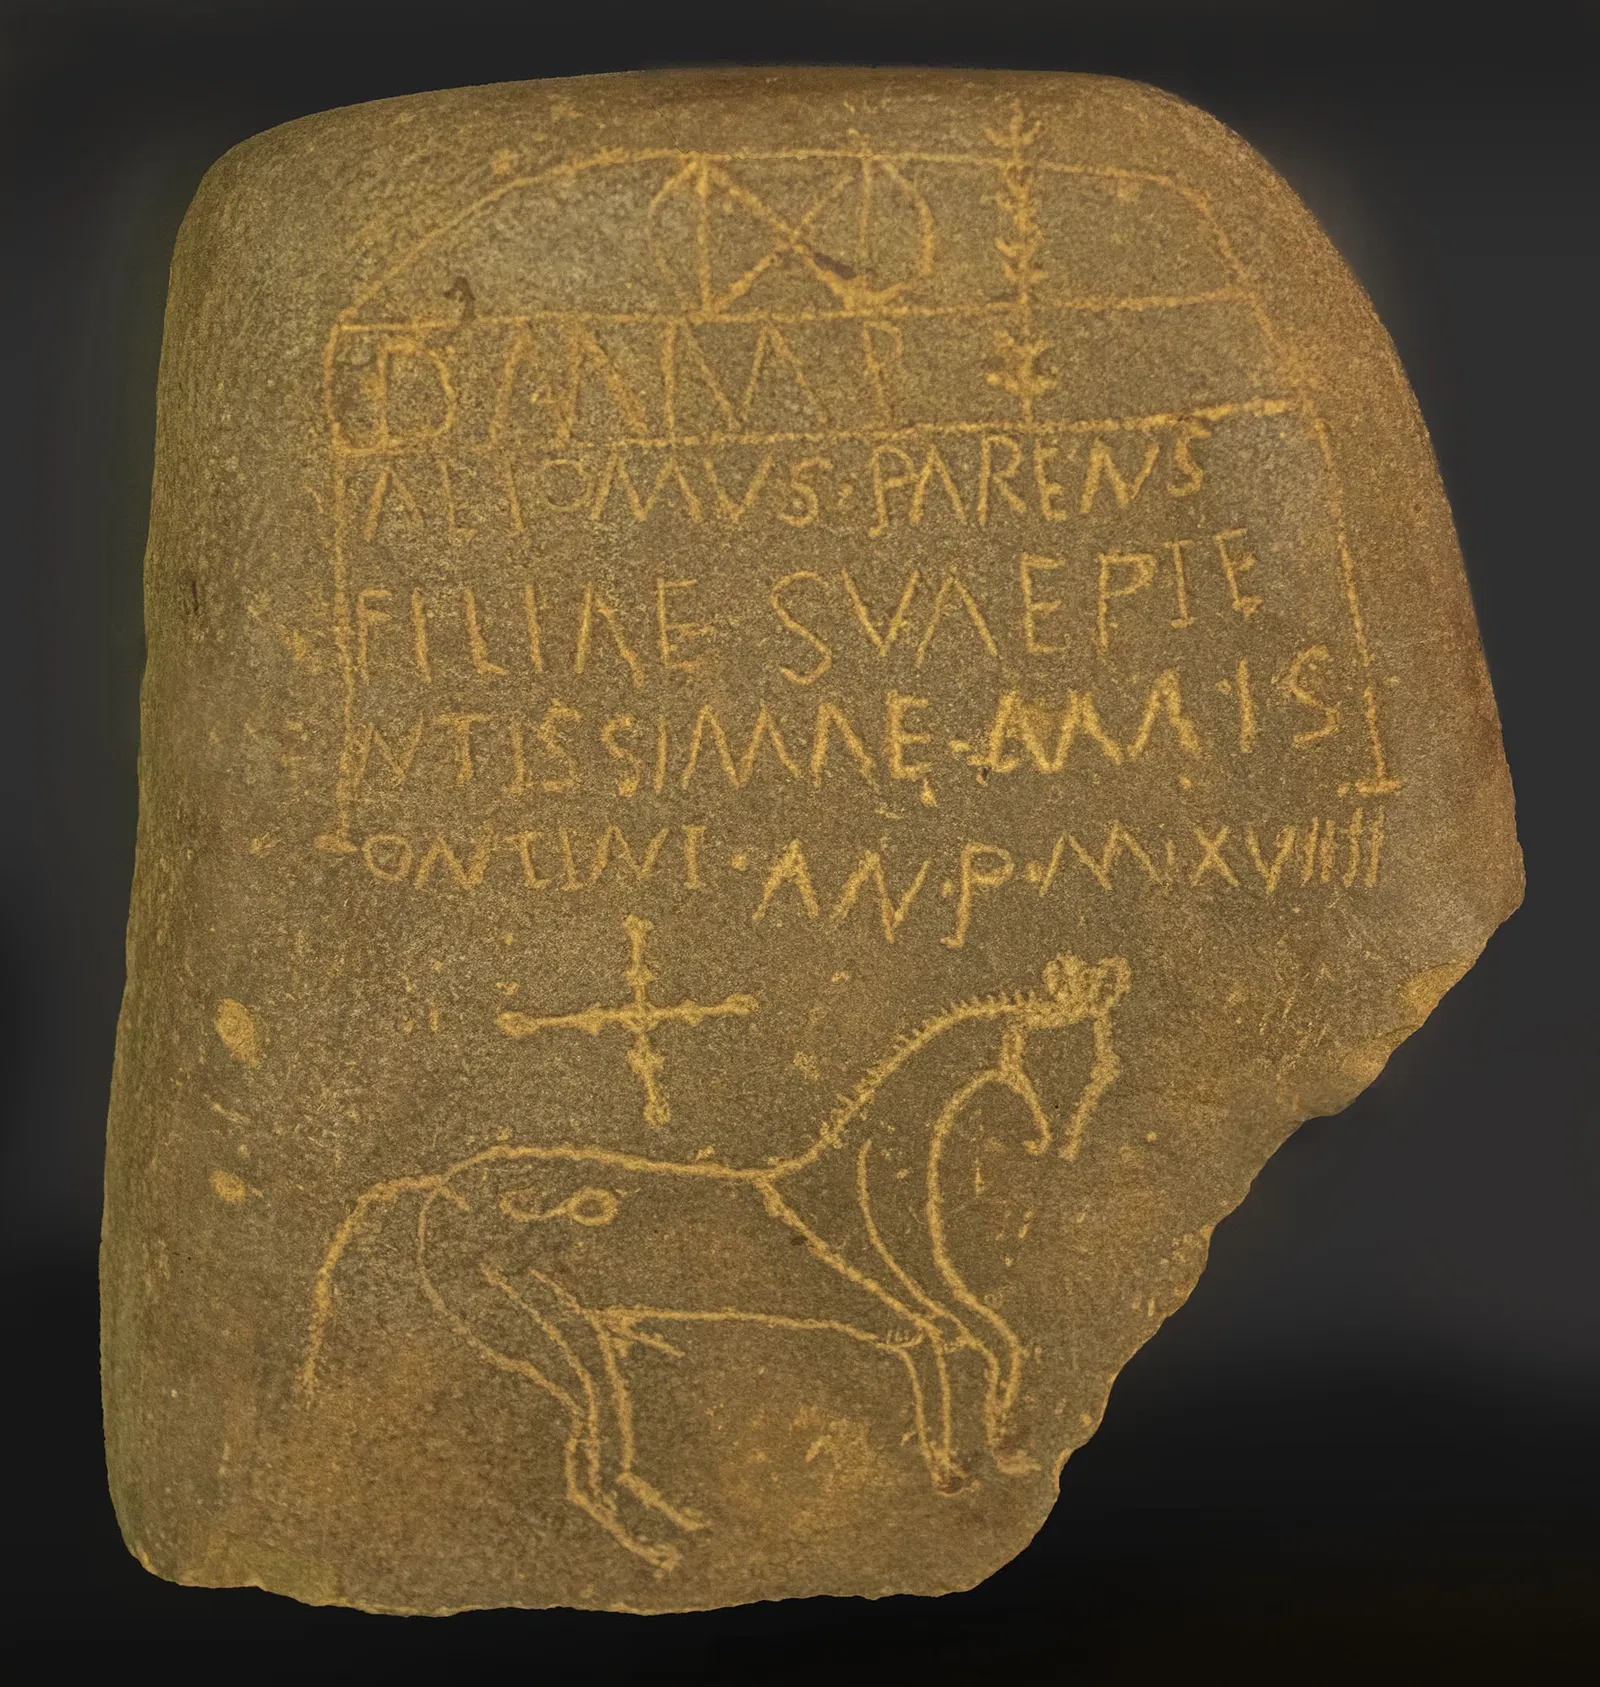 D M M P
ALIOMVS · PARENS
FILIAE SVAE PIE
NTISSIMAE
ONTINI · AN · P · M · XVIIII